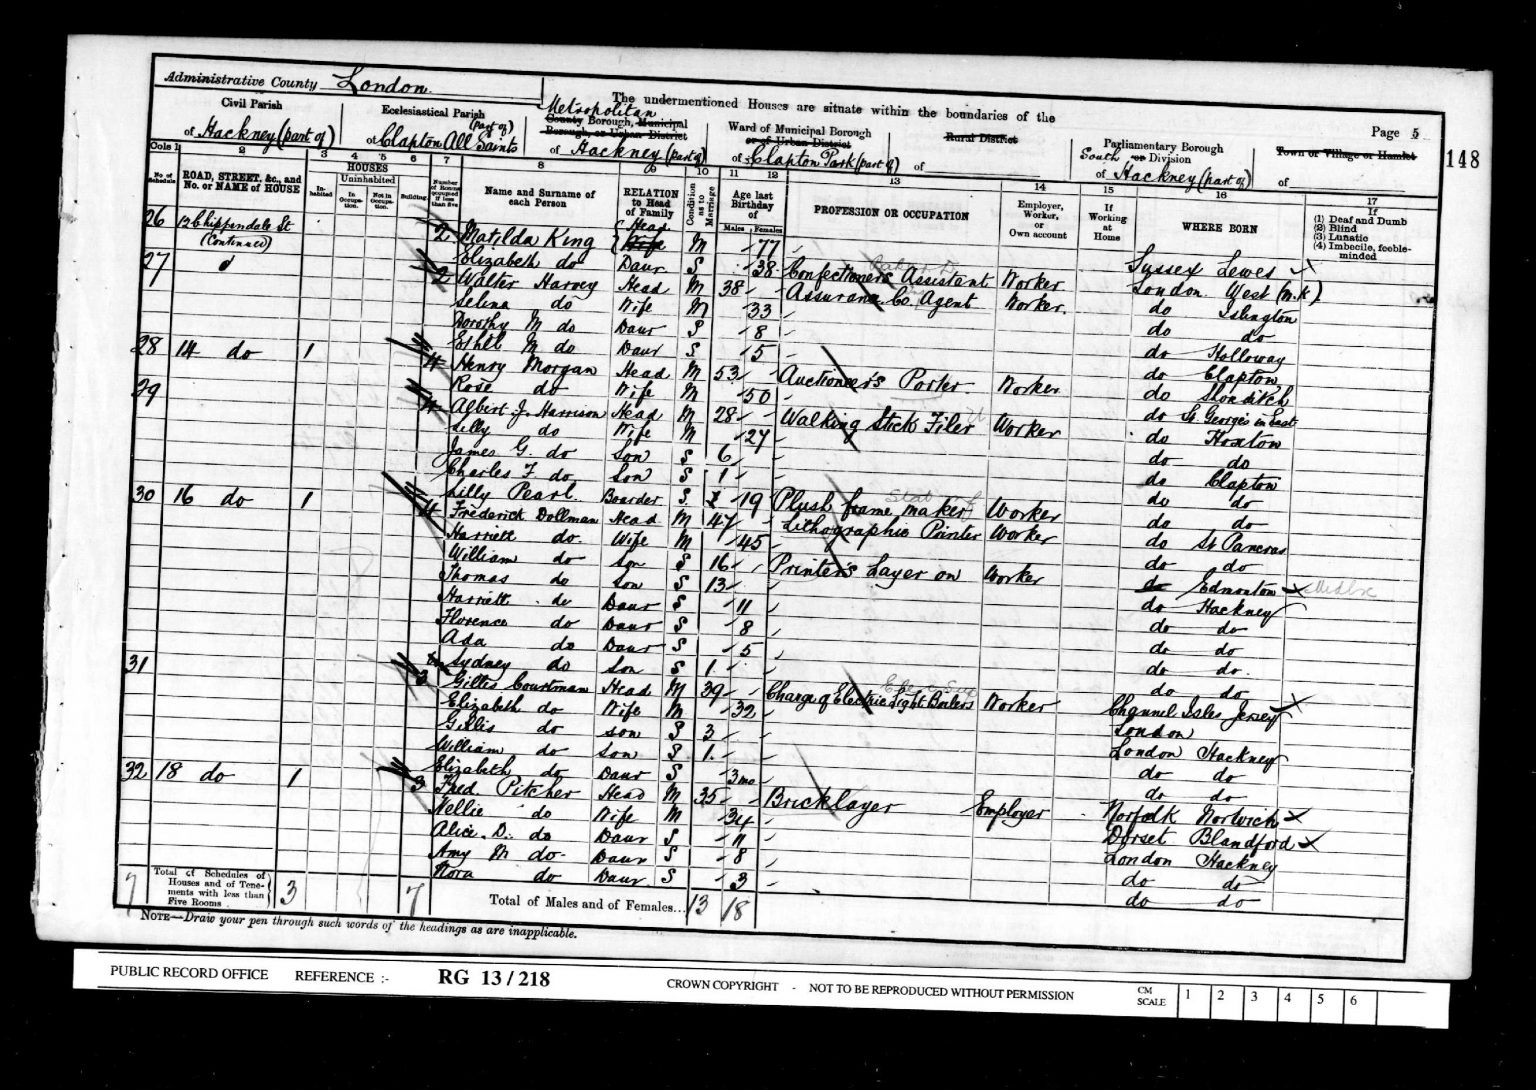 Administrative County London
The undermentioned Houses are situate within the boundaries of the
Civil Parish
of Hackney (part of)
Ecclesiastical Parish
(part of)
of Clapton All Saints
Metropolitan
County Borough, Municipal
Borough, or Urban District
of Hackney (part of)
Ward of Municipal Borough
or of Urban District
of Clapton Park (part of)
Rural District
of
Parliamentary Borough
South or Division
of Hackney (part of)
Page 5
Town or Village or Hamlet
of
148
Cols 1 2 3 4 5 6 7 8 9 10 11 12 13 14 15 16 17
No. of Schedule
ROAD, STREET, &c., and No. or NAME of HOUSE
HOUSES
Inhabited
Uninhabited
In Occupation.
Not in Occupation.
Building.
Number of Rooms occupied if less than five
Name and Surname of each Person
RELATION to Head of Family
Condition as to Marriage
Age last Birthday of
Males Females
PROFESSION OR OCCUPATION
Employer, Worker, or Own account
If Working at Home
WHERE BORN
If
(1) Deaf and Dumb
(2) Blind
(3) Lunatic
(4) Imbecile, feeble-minded
26 12 Chippendale St (Continued) 2 Matilda King Head Wife M 77 Sussex Lewes
Elizabeth do Daur S 38 Confectioners Assistant Worker London West (n.k)
27 2 Walter Harvey Head M 38 Assurance Co. Agent Worker do Islington
Selina do Wife M 33 do do
Dorothy M do Daur S 8 do Holloway
Ethel M do Daur S 5 do Clapton
28 14 do 1 4 Henry Morgan Head M 53 Auctioneer's Porter Worker do Shoreditch
Rose do Wife M 50 do St. George's in East
29 4 Albert J. Harrison Head M 28 Walking Stick Filer Worker do Hoxton
Lilly do Wife M 27 do do
James G. do Son S 6 do Clapton
Charles F do Son S 1 do do
Lilly Pearl Boarder S 19 Plush frame maker Worker do do
30 16 do 1 4 Frederick Dollman Head M 47 Lithographic Printer Worker do St Pancras
Harriett do Wife M 45 do do
William do Son S 16 Printer's Layer on Worker do Edmonton
Thomas do Son S 13 do Hackney
Harriett do Daur S 11 do do
Florence do Daur S 8 do do
Ada do Daur S 5 do do
Sydney do Son S 1 do do
31 3 Gillis Courtman Head M 39 Charge of Electric Light Boilers Worker Channel Isles Jersey
Elizabeth do Wife M 32 London
Gillis do Son S 3 London Hackney
William do Son S 1 do do
Elizabeth do Daur S 3mo do do
32 18 do 1 3 Fred. Pitcher Head M 35 Bricklayer Employer Norfolk Norwich
Nellie do Wife M 34 Dorset Blandford
Alice D. do Daur S 11 London Hackney
Amy M do Daur S 8 do do
Nora do Daur S 3 do do
7 Total of Schedules of Houses and of Tenements with less than Five Rooms 3 7 Total of Males and of Females... 13 18
NOTE—Draw your pen through such words of the headings as are inapplicable.
PUBLIC RECORD OFFICE REFERENCE :- RG 13/218 CROWN COPYRIGHT - NOT TO BE REPRODUCED WITHOUT PERMISSION CM SCALE 1 2 3 4 5 6